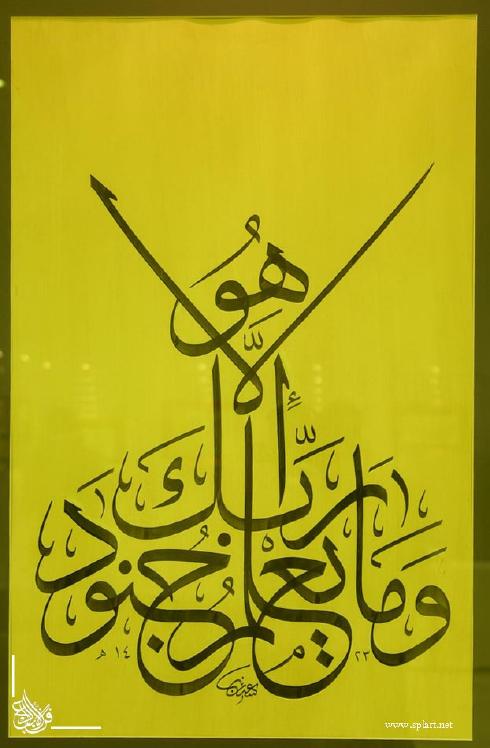 وَمَا يَعْلَمُ جُنُودَ
رَبِّكَ
إِلَّا
هُوَ
١٤٢٣ هـ
www.splart.net